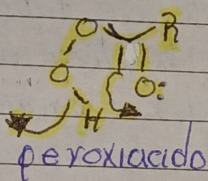 O R
O O:
H
peroxiacido